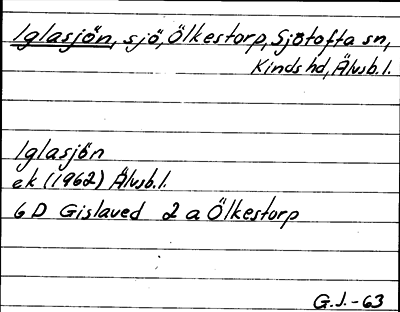 Iglasjön, sjö, Ölkestorp, Sjötofta sn,
Kinds hd, Älvsb. l.
Iglasjön
ek (1962) Älvsb. l.
6 D Gislaved 2 a Ölkestorp
G. J. - 63